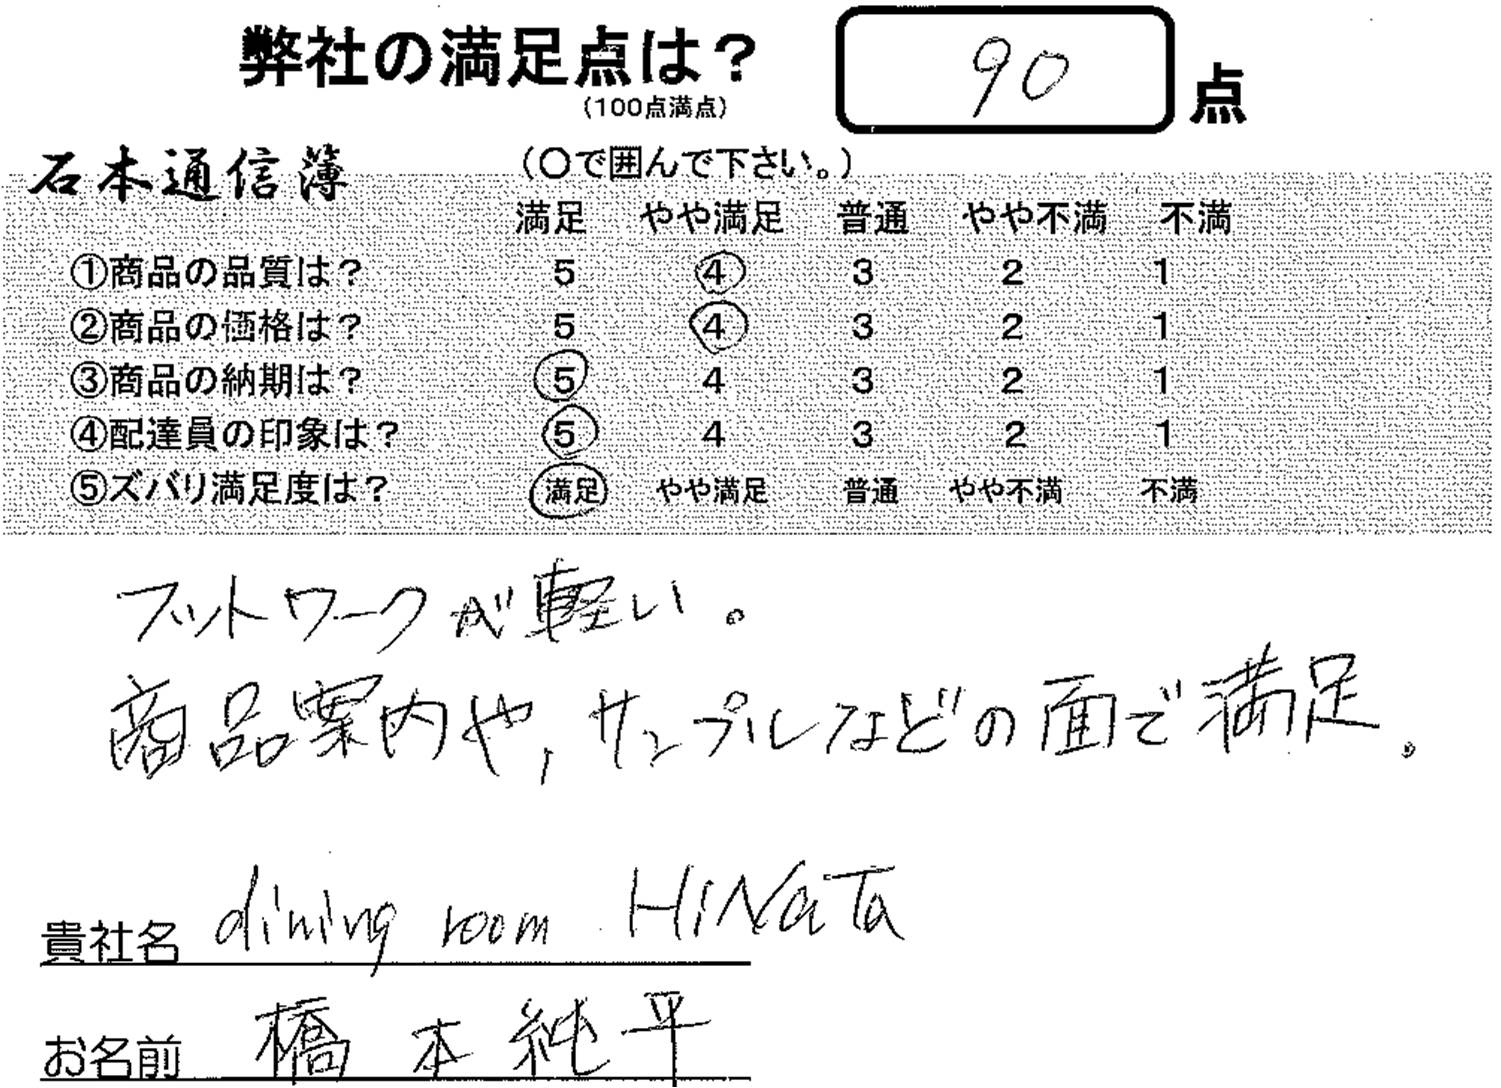 弊社の満足点は？ 90 点
（100点満点）
石本通信簿 （〇で囲んで下さい。）
満足 やや満足 普通 やや不満 不満
①商品の品質は？ 5 4 3 2 1
②商品の価格は？ 5 4 3 2 1
③商品の納期は？ 5 4 3 2 1
④配達員の印象は？ 5 4 3 2 1
⑤ズバリ満足度は？ 満足 やや満足 普通 やや不満 不満
フットワークが軽い。
商品案内や,サンプルなどの面で満足。
貴社名 dining room HiNaTa
お名前 橋本純平